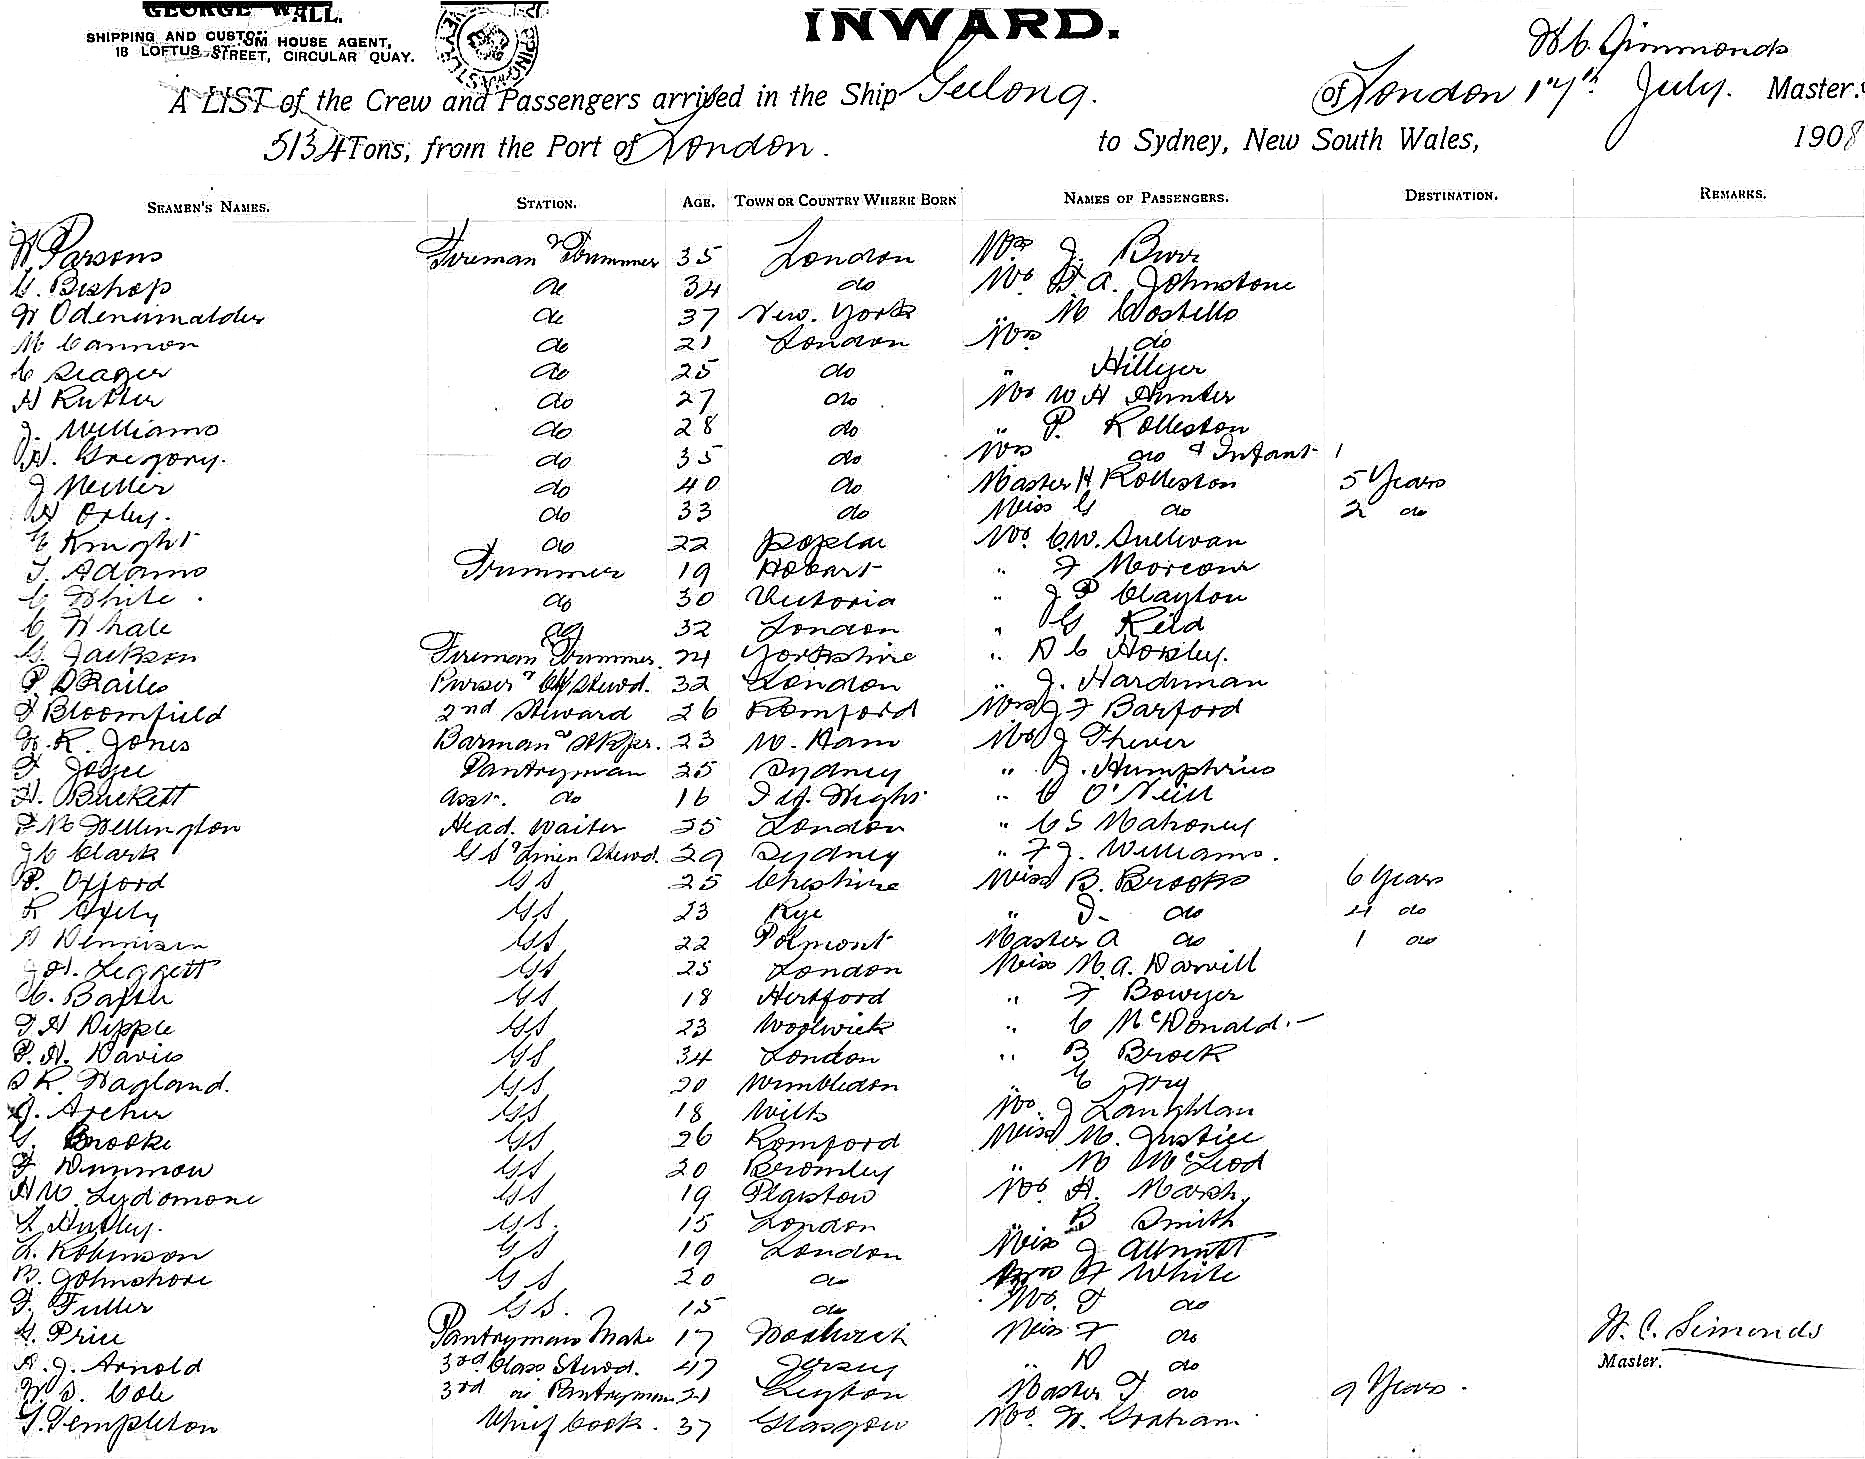 GEORGE WALL.
SHIPPING AND CUSTOM HOUSE AGENT,
18 LOFTUS STREET, CIRCULAR QUAY.
INWARD.
W C Simmonds
A LIST of the Crew and Passengers arrived in the Ship Geelong. of London 17th July. Master,
5134 Tons, from the Port of London. to Sydney, New South Wales, 1908
SEAMEN'S NAMES. STATION. AGE. TOWN OR COUNTRY WHERE BORN NAMES OF PASSENGERS. DESTINATION. REMARKS.
W Parsons Fireman & Trimmer 35 London Mrs J. Burr
G. Bishop do 34 do Mr. A. Johnstone
W do 37 New York " M Costello
M Cannon do 21 London Mrs do
C Seager do 25 do " Hillyer
H Rutter do 27 do Mr W H Hunter
J. Williams do 28 do " P. Rolleston
H. Gregory. do 35 do Mrs do & Infant 1
J Miller do 40 do Master H Rolleston 5 Years
H do 33 do Miss G do 2 do
E Knight do 22 Poplar Mr. C.W. Sullivan
T. Adams Trimmer 19 Hobart " F
C White. do 30 Victoria " J P Clayton
C Whale do 32 London " G Reid
G. Jackson Fireman & Trimmer. 24 Yorkshire " A C Horsley.
P. Purser & Ch Stewd. 32 London " J. Hardiman
F Bloomfield 2nd Steward 26 Romford Mrs J F Barford
W. R. Jones Barman & Stkpr. 23 W. Ham Mr J Thever
F Joyce Pantryman 25 Sydney " J. Humphries
H. Buckett Asst. do 16 I of. Wight " C O'Neill
F M Wellington Head. Waiter 25 London " C S Mahoney
J C Clark GS & Linen Stewd. 29 Sydney " F J. Williams.
P. Oxford GS 25 Cheshire Miss B. Brooks 6 Years
R GS 23 Rye " I. do 4 do
D Dennison GS 22 Polmont Master A do 1 do
J H. Leggett GS 25 London Miss M. A. Darvill
C. GS 18 Hertford " F Bowyer
F H Dipple GS 23 Woolwich " C McDonald.
P. H. Davies GS 34 London " B Brock
S R. Hagland. GS 20 Wimbledon C Fry
J. Archer GS 18 Wilts Mr. J Laughlan
G. Brooke GS 26 Romford Miss M. Justice
F Dunmow GS 20 Bromley " M McLeod
H W Lydamone GS 19 Plaistow Mr. A. Marsh
L GS. 15 London " B Smith
L. Robinson GS 19 London Miss J Allnutt
B. Johnshore GS 20 do Mrs F White
F. Fuller GS. 15 do Mr. F do
G. Price Pantrymans Mate 17 Woolwich Miss F do W. C. Simonds
A. J. Arnold 3rd Class Stewd. 47 Jersey " D do Master.
W. S. Cole 3rd do Pantryman 21 Leyton Master F do 9 Years.
T. Templeton Chief Cook. 37 Glasgow Mr. W. Graham